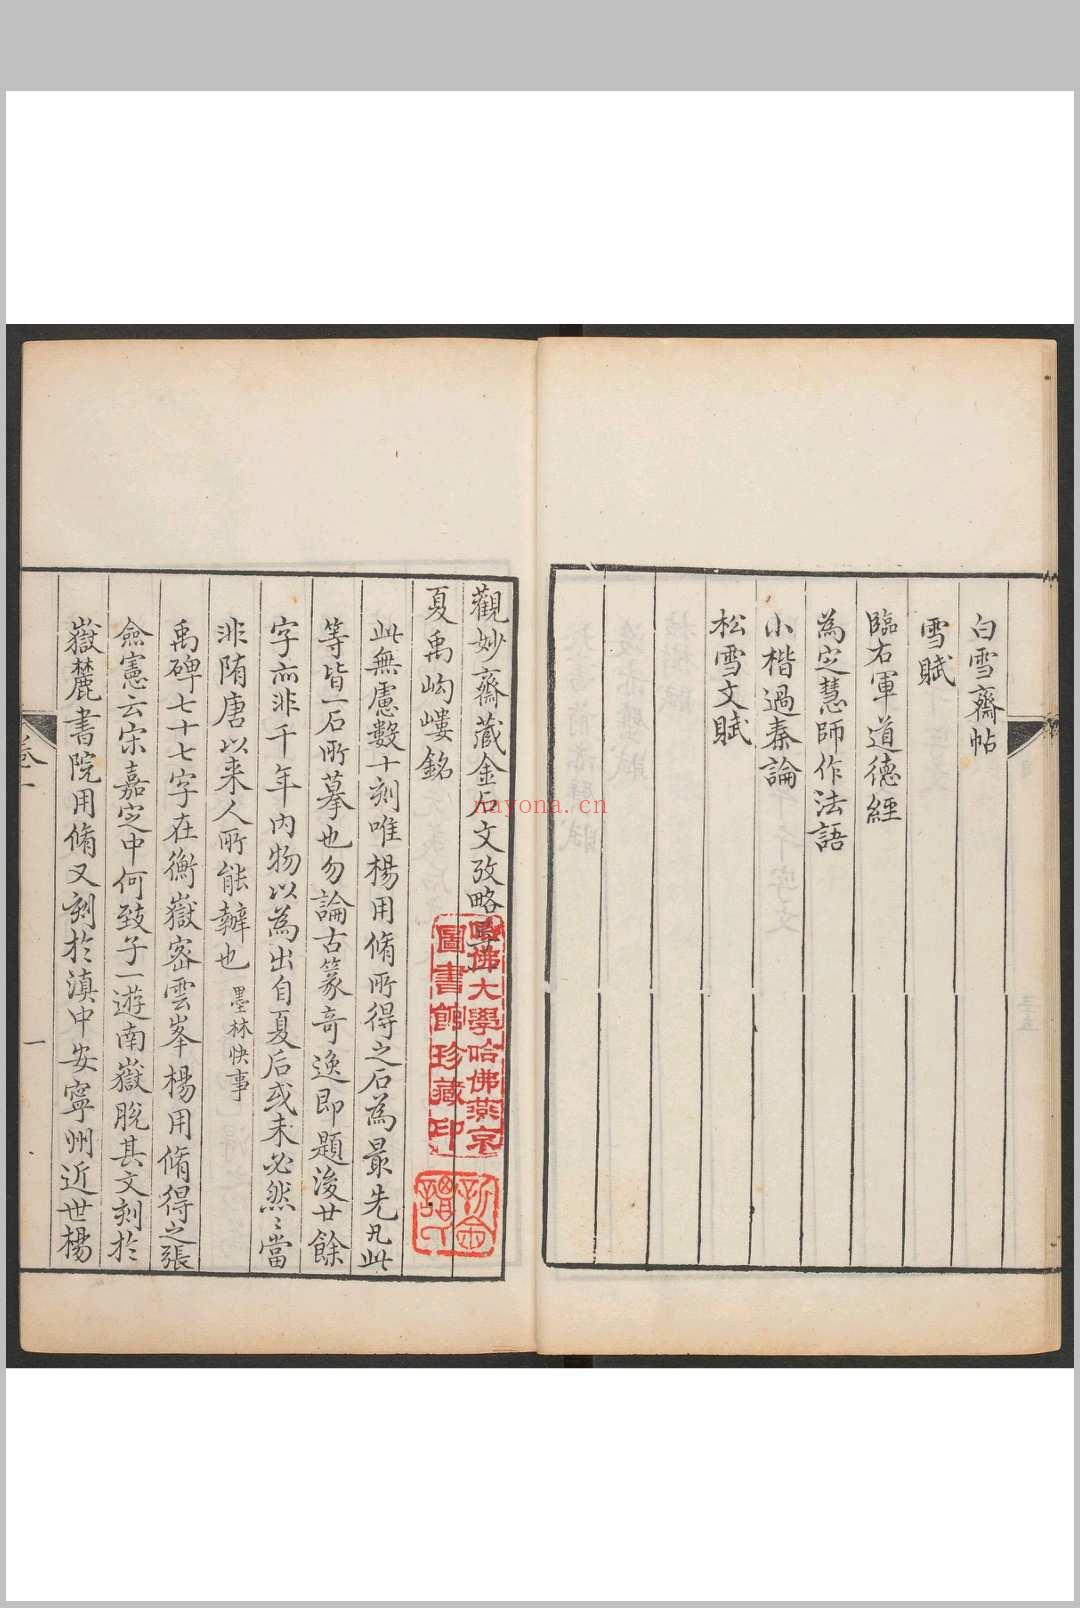 白雪齋帖
雪賦
臨右軍道德經
為定慧師作法語
小楷過秦論
松雪文賦
觀妙齋藏金石文攷略
夏禹岣嶁銘
此無慮數十刻唯楊用脩所得之石為最先凡此
等皆一石所摹也勿論古篆奇逸即題後廿餘
字亦非千年內物以為出自夏后或未必然〻當
非隋唐以来人所能辦也 墨林快事
禹碑七十七字在衡嶽密雲峯楊用脩得之張
僉憲云宋嘉定中何致子一遊南嶽脫其文刻於
嶽麓書院用脩又刻於滇中安寧州近世楊
卷一
一
哈佛大學哈佛燕京
圖書館珍藏印
nayona.cn